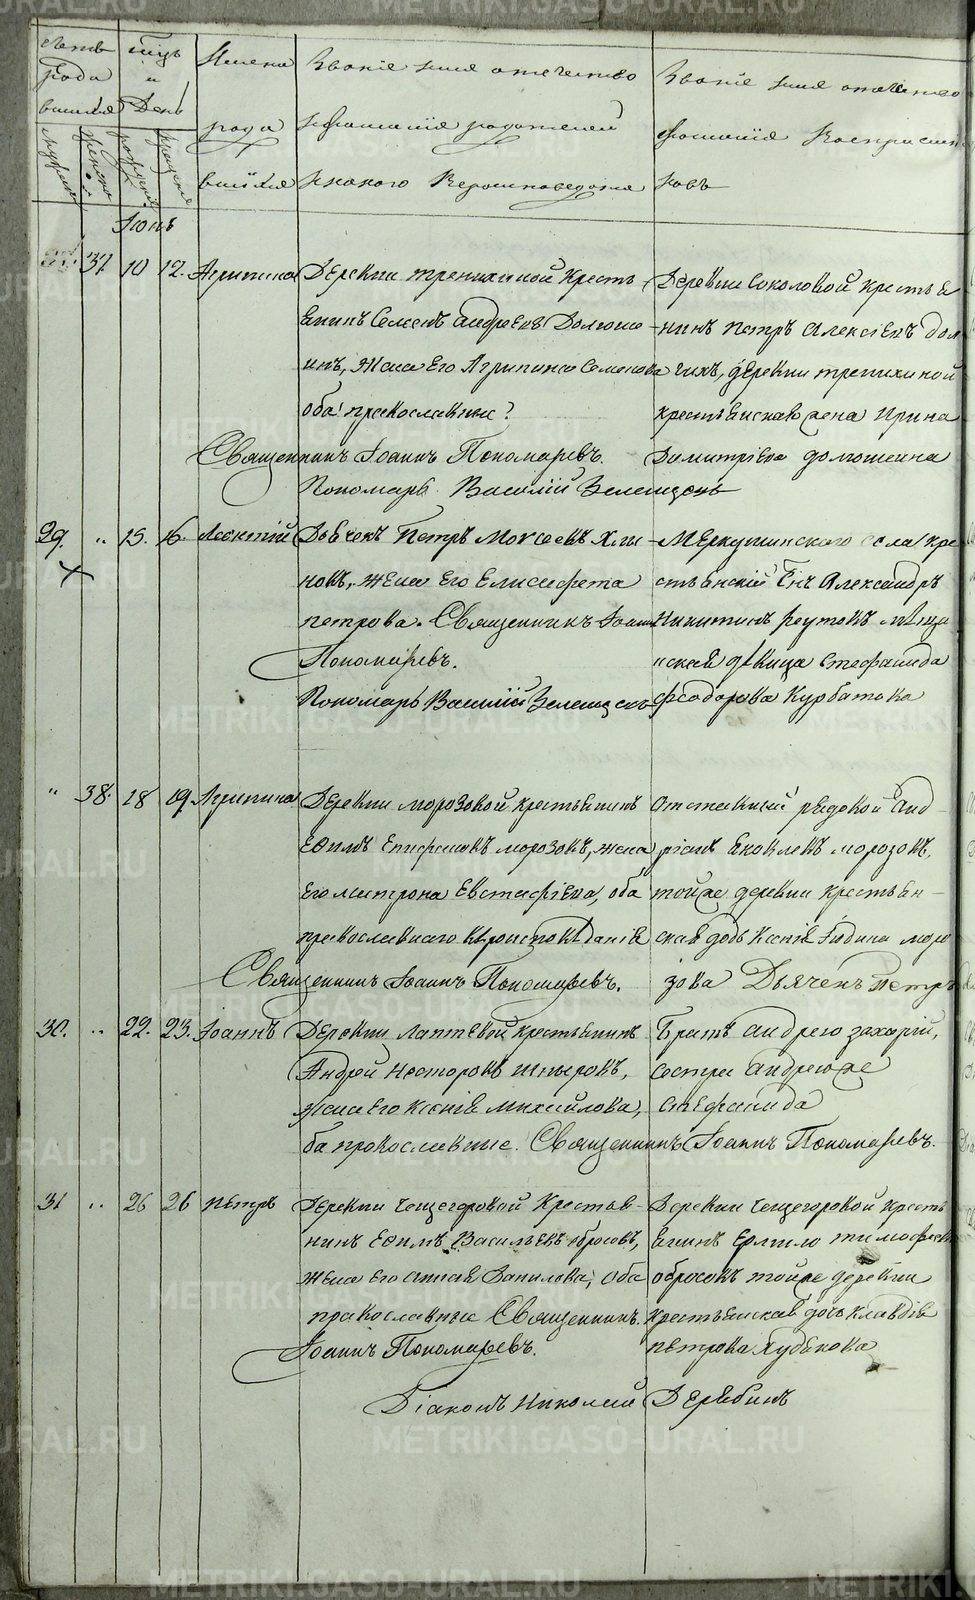 Счетъ родившихся
Мѣсяцъ и День
Имена родившихся
Званіе имя отечество и фамилія родителей и какого Вероисповеданія
Званіе имя отечество фамилія Воспріемниковъ
мужеска
женска
рожденія
крещенія
Іюнь
37 10 12. Агрипина
Деревни трепихиной Кресть
янинъ Семенъ Андреевъ Долгоше
инъ, Жена его Агрипина Семенова
оба православные
Священникъ Іоаннъ Пономаревъ.
Пономарь Василій Зеленцовъ
Деревни Соколовой Крестья
нинъ Петръ Алексіевъ дол
гихъ, деревни трепихиной
крестьянская жена Ирина
Димитріева долгошеина
29. „ 15. 16. Леонтій
Дьячекъ Петръ Моисеевъ Хлы
новъ, жена Его Елисавета
петрова. Священникъ Іоаннъ
Пономаревъ.
Пономарь Василій Зеленцовъ
Меркушинского села кре
стьянскій Сынъ Александръ
Никитинъ Реутовъ
ская дѣвица Стефанида
феодорова Курбатова
„ 38. 18 19. Агрипина
Деревни морозовой крестьянинъ
Ефимъ Епифановъ морозовъ, жена
Его матрона Евстафіева, оба
православнаго вѣроисповѣданія
Священникъ Іоаннъ Пономаревъ.
отставный рядовой Анд
ріанъ Яковлевъ морозовъ,
тойже деревни крестьян
ская дочь Ксенія Іудина моро
зова Дьячекъ Петръ
30. „ 22. 23. Іоаннъ
Деревни лаптевой крестьянинъ
Андрей Несторовъ Шпыровъ,
Жена его Ксенія Михайлова,
ба православные. Священникъ Іоаннъ Пономаревъ.
Братъ Андрею Захарій,
Сестра Андреюже
Стефанида
31 „ 26 26 Петръ
Деревни Чещегоровой Крестья
нинъ Ефимъ Васильевъ обросовъ,
жена его Анна Данилова, оба
православные Священникъ
Іоаннъ Пономаревъ.
Деревни Чещегоровой Кресть
янинъ Ермило тимофѣевъ
обросовъ тойже деревни
Крестьянская дочь Клавдія
петрова Худякова
Діаконъ Николай Дерябинъ
METRIKI.GASO-URAL.RU